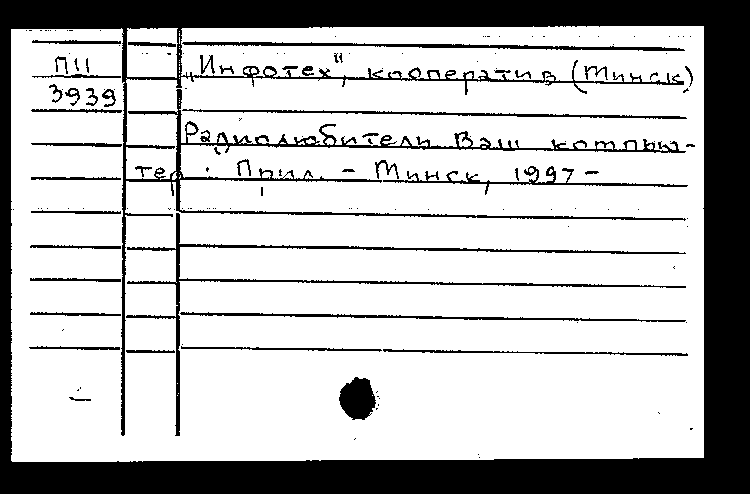 П11
3939
„Инфотех", кооператив (Минск)
Радиолюбитель Ваш компью-
тер : Прил. - Минск, 1997 -